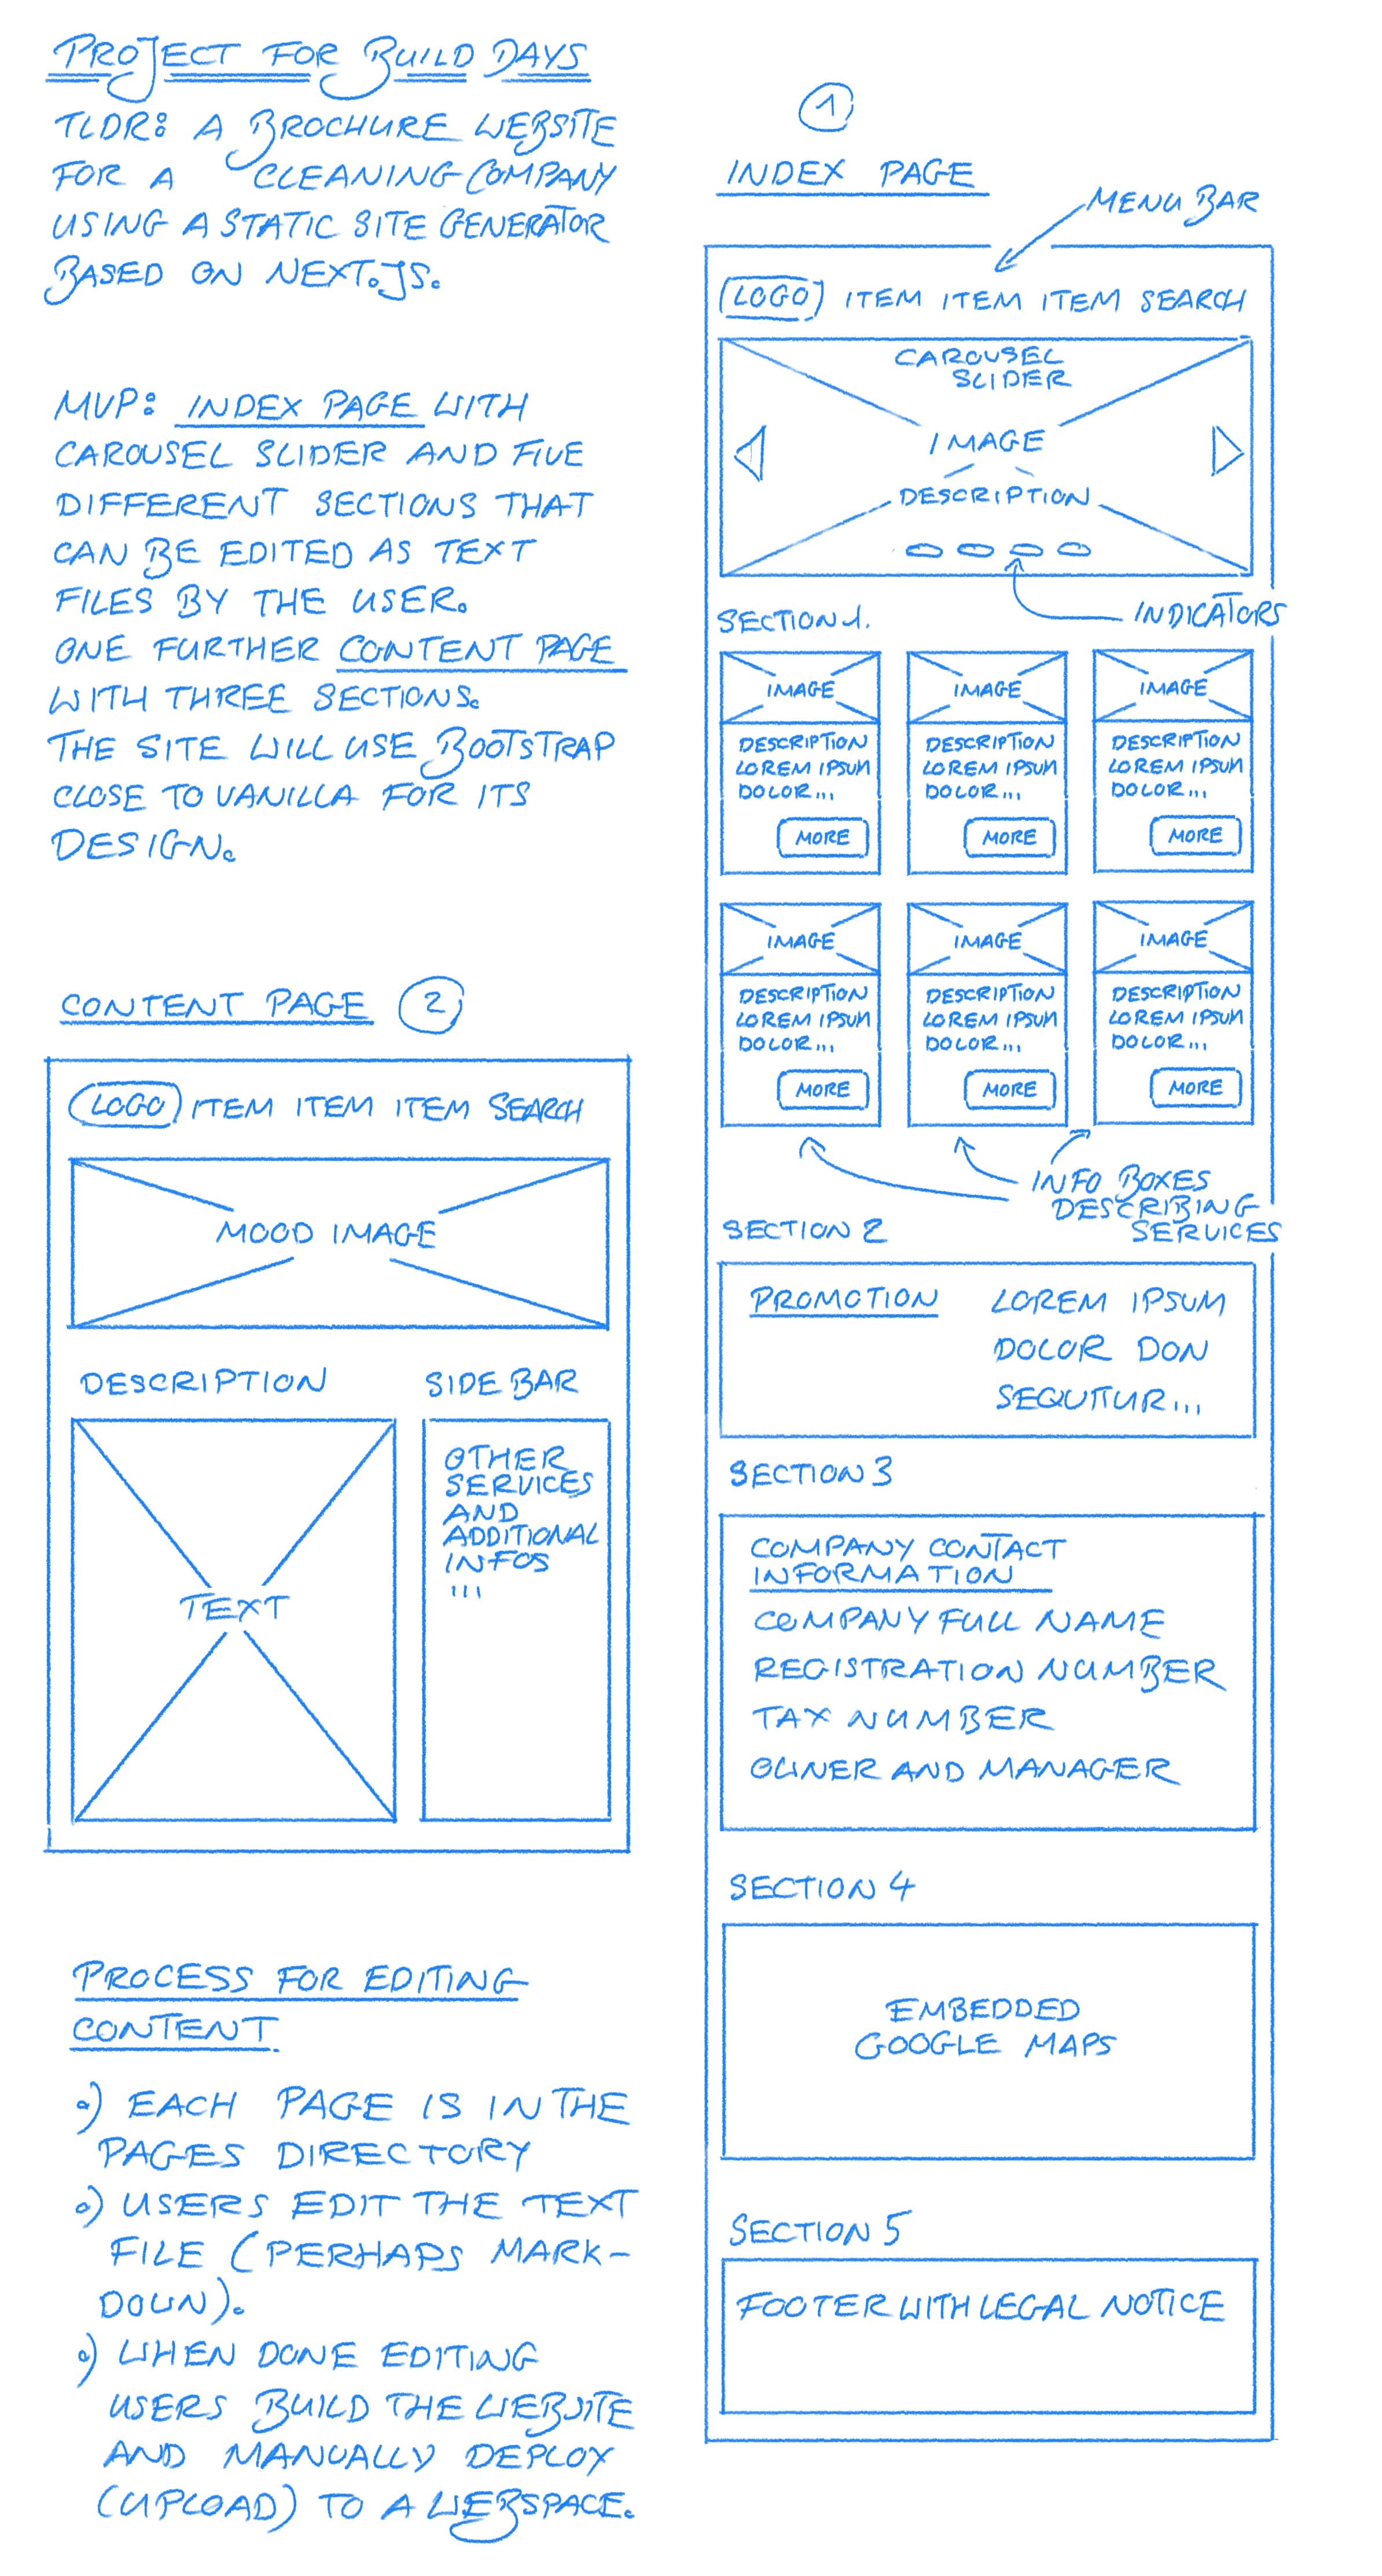 PROJECT FOR BUILD DAYS
TLDR: A BROCHURE WEBSITE
FOR A CLEANING COMPANY
USING A STATIC SITE GENERATOR
BASED ON NEXT.JS.
MVP: INDEX PAGE WITH
CAROUSEL SLIDER AND FIVE
DIFFERENT SECTIONS THAT
CAN BE EDITED AS TEXT
FILES BY THE USER.
ONE FURTHER CONTENT PAGE
WITH THREE SECTIONS.
THE SITE WILL USE BOOTSTRAP
CLOSE TO VANILLA FOR ITS
DESIGN.
CONTENT PAGE 2
LOGO ITEM ITEM ITEM SEARCH
MOOD IMAGE
DESCRIPTION
TEXT
SIDE BAR
OTHER
SERVICES
AND
ADDITIONAL
INFOS
...
PROCESS FOR EDITING
CONTENT
EACH PAGE IS IN THE
PAGES DIRECTORY
USERS EDIT THE TEXT
FILE (PERHAPS MARK-
DOWN).
WHEN DONE EDITING
USERS BUILD THE WEBSITE
AND MANUALLY DEPLOY
(UPLOAD) TO A WEBSPACE.
1
INDEX PAGE
MENU BAR
LOGO ITEM ITEM ITEM SEARCH
CAROUSEL
SLIDER
IMAGE
DESCRIPTION
INDICATORS
SECTION 1.
IMAGE
DESCRIPTION
LOREM IPSUM
DOLOR...
MORE
IMAGE
DESCRIPTION
LOREM IPSUM
DOLOR...
MORE
IMAGE
DESCRIPTION
LOREM IPSUM
DOLOR...
MORE
IMAGE
DESCRIPTION
LOREM IPSUM
DOLOR...
MORE
IMAGE
DESCRIPTION
LOREM IPSUM
DOLOR...
MORE
IMAGE
DESCRIPTION
LOREM IPSUM
DOLOR...
MORE
INFO BOXES
DESCRIBING
SERVICES
SECTION 2
PROMOTION
LOREM IPSUM
DOLOR DON
SEQUITUR...
SECTION 3
COMPANY CONTACT
INFORMATION
COMPANY FULL NAME
REGISTRATION NUMBER
TAX NUMBER
OWNER AND MANAGER
SECTION 4
EMBEDDED
GOOGLE MAPS
SECTION 5
FOOTER WITH LEGAL NOTICE